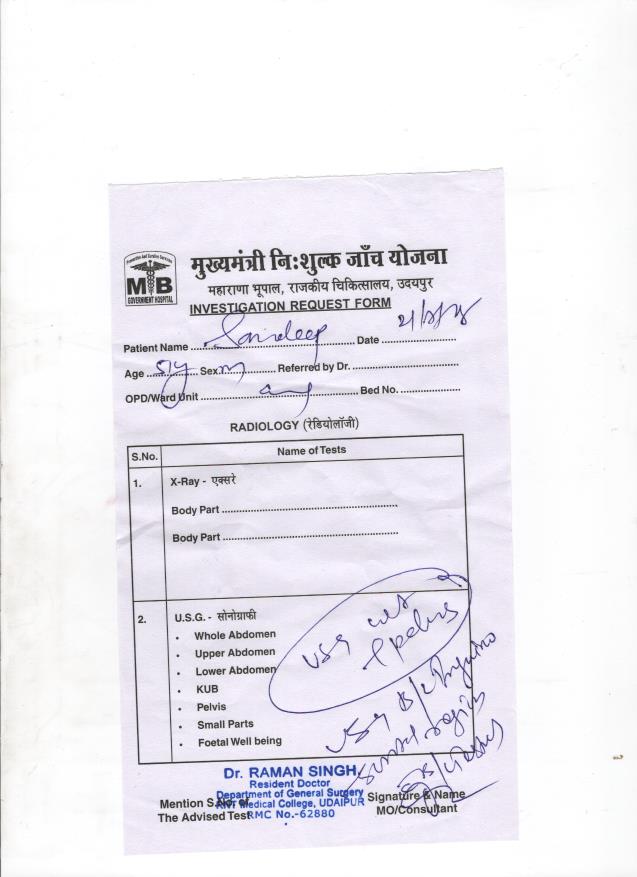 Preventive And Curative Services
MB
GOVERNMENT HOSPITAL
मुख्यमंत्री नि:शुल्क जाँच योजना
महाराणा भूपाल, राजकीय चिकित्सालय, उदयपुर
INVESTIGATION REQUEST FORM
Patient Name Sandeep Date
Age Sex m Referred by Dr.
OPD/Ward Unit Bed No.
RADIOLOGY (रेडियोलॉजी)
S.No. Name of Tests
1. X-Ray - एक्सरे
Body Part
Body Part
2. U.S.G. - सोनोग्राफी
• Whole Abdomen
• Upper Abdomen
• Lower Abdomen
• KUB
• Pelvis
• Small Parts
• Foetal Well being
USG
pelvis
USG B/L Inguino
scrotal region
Dr. RAMAN SINGH
Resident Doctor
Department of General Surgery
RNT Medical College, UDAIPUR
RMC No.-62880
Mention S.No. of
The Advised Test
Signature & Name
MO/Consultant